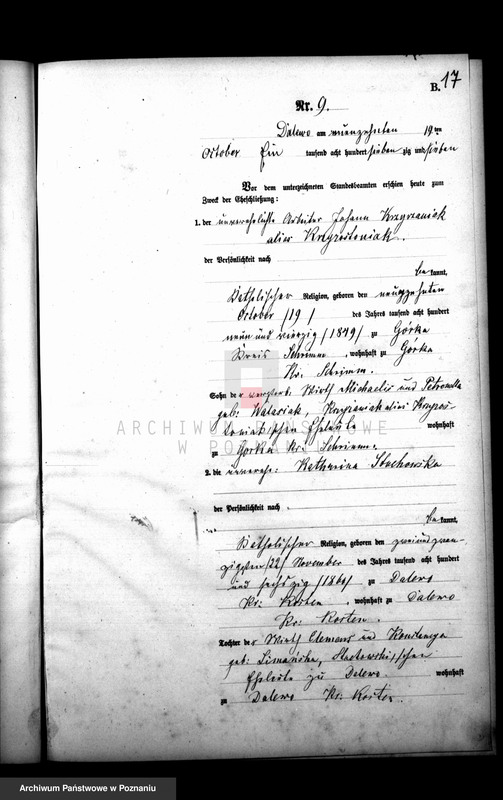 B. 17
Nr. 9.
Dalewo am neunzehnten 19ten
October Ein tausend acht hundert sieben zig und sieben
Vor dem unterzeichneten Standesbeamten erschien heute zum
Zweck der Eheschließung:
1. der unverehelichte Arbeiter Johann Krzyzaniak
alias Krzyzostaniak.
der Persönlichkeit nach
bekannt,
Katholischer Religion, geboren den neunzehnten
October /19/ des Jahres tausend acht hundert
neun und vierzig /1849/ zu Górka
Kreis Schrimm, wohnhaft zu Górka
Kr. Schrimm.
Sohn der Wirth Michaelis und Petronella
geb: Krzyzaniak alias
Eheleute wohnhaft
zu Gorka Kr. Schrimm.
2. die unvereh: Katharina
der Persönlichkeit nach
bekannt,
Katholischer Religion, geboren den zweiundzwan-
zigsten /22/ November des Jahres tausend acht hundert
und sechszig zu Dalewo
Kr: Kosten, wohnhaft zu Dalewo
Kr: Kosten.
Tochter der Wirth Clemens und Konstancya
geb:
Eheleute zu Dalewo. wohnhaft
zu Dalewo Kr: Kosten.
ARCHIWUM PAŃSTWOWE
W POZNANIU
Archiwum Państwowe w Poznaniu